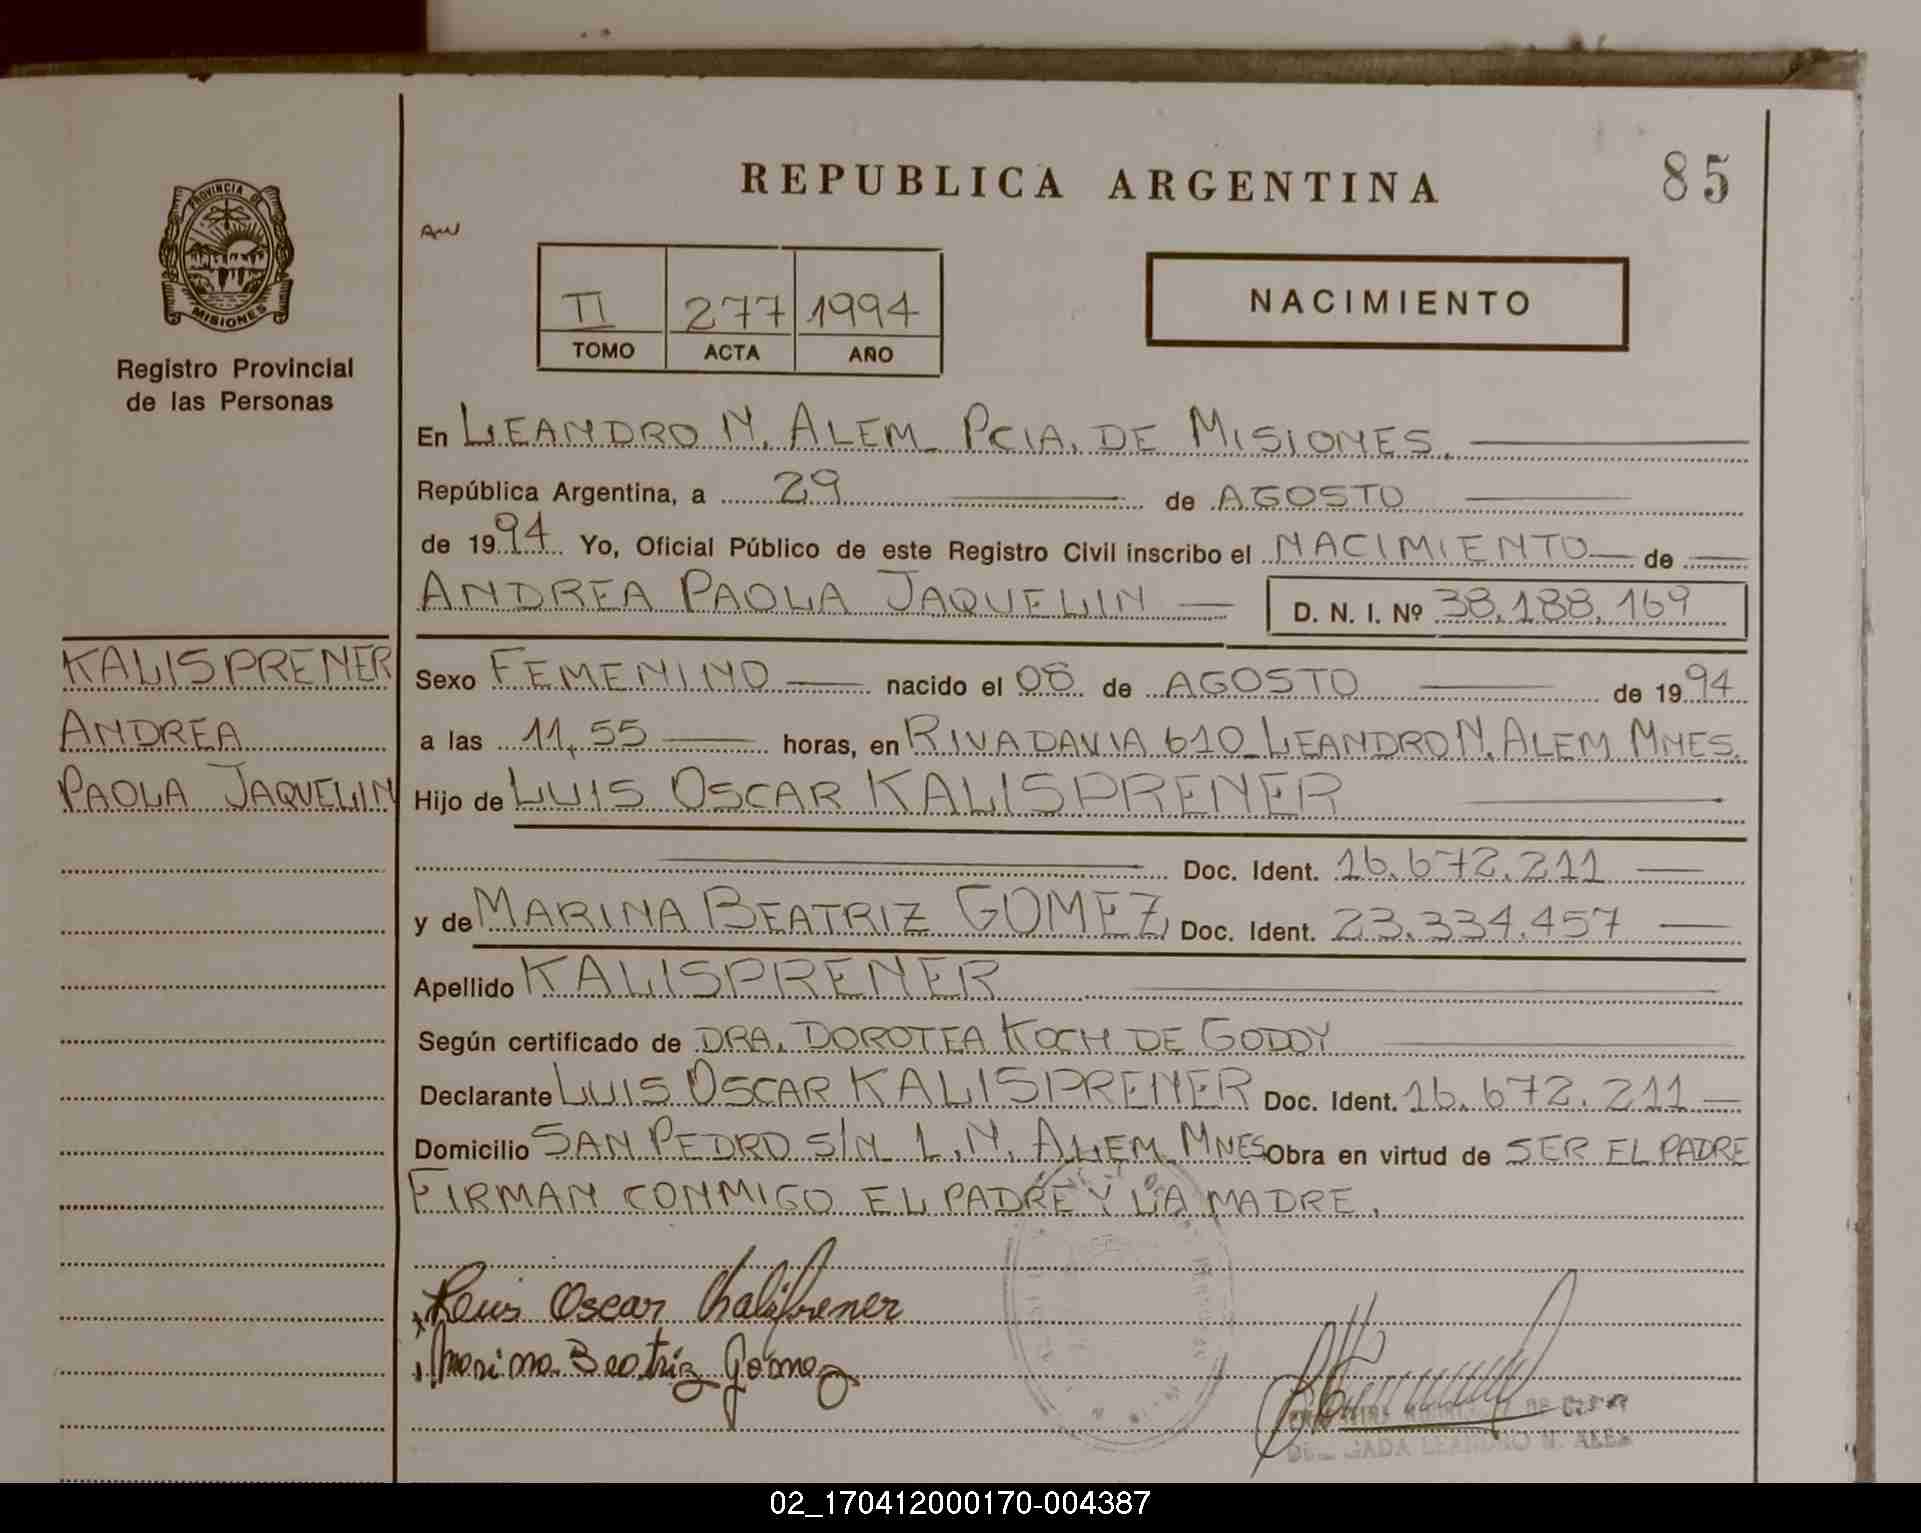 PROVINCIA DE
MISIONES
Registro Provincial
de las Personas
KALISPRENER
ANDREA
PAOLA JAQUELIN
REPUBLICA ARGENTINA
85
II 277 1994
TOMO ACTA AÑO
NACIMIENTO
En LEANDRO N. ALEM PCIA. DE MISIONES.
República Argentina, a 29 de AGOSTO
de 1994 Yo, Oficial Público de este Registro Civil inscribo el NACIMIENTO de
ANDREA PAOLA JAQUELIN D. N. I. Nº 38.188.169
Sexo FEMENINO nacido el 08 de AGOSTO de 1994
a las 11,55 horas, en RIVADAVIA 610 LEANDRO N. ALEM MNES.
Hijo de LUIS OSCAR KALISPRENER
Doc. Ident. 16.672.211
y de MARINA BEATRIZ GOMEZ Doc. Ident. 23.334.457
Apellido KALISPRENER
Según certificado de DRA. DOROTEA KOCH DE GODOY
Declarante LUIS OSCAR KALISPRENER Doc. Ident. 16.672.211
Domicilio SAN PEDRO S/N L.N. ALEM MNES Obra en virtud de SER EL PADRE
FIRMAN CONMIGO EL PADRE Y LA MADRE.
Luis Oscar Kalisprener
Marina Beatriz Gomez
LEANDRO N. ALEM
02_170412000170-004387